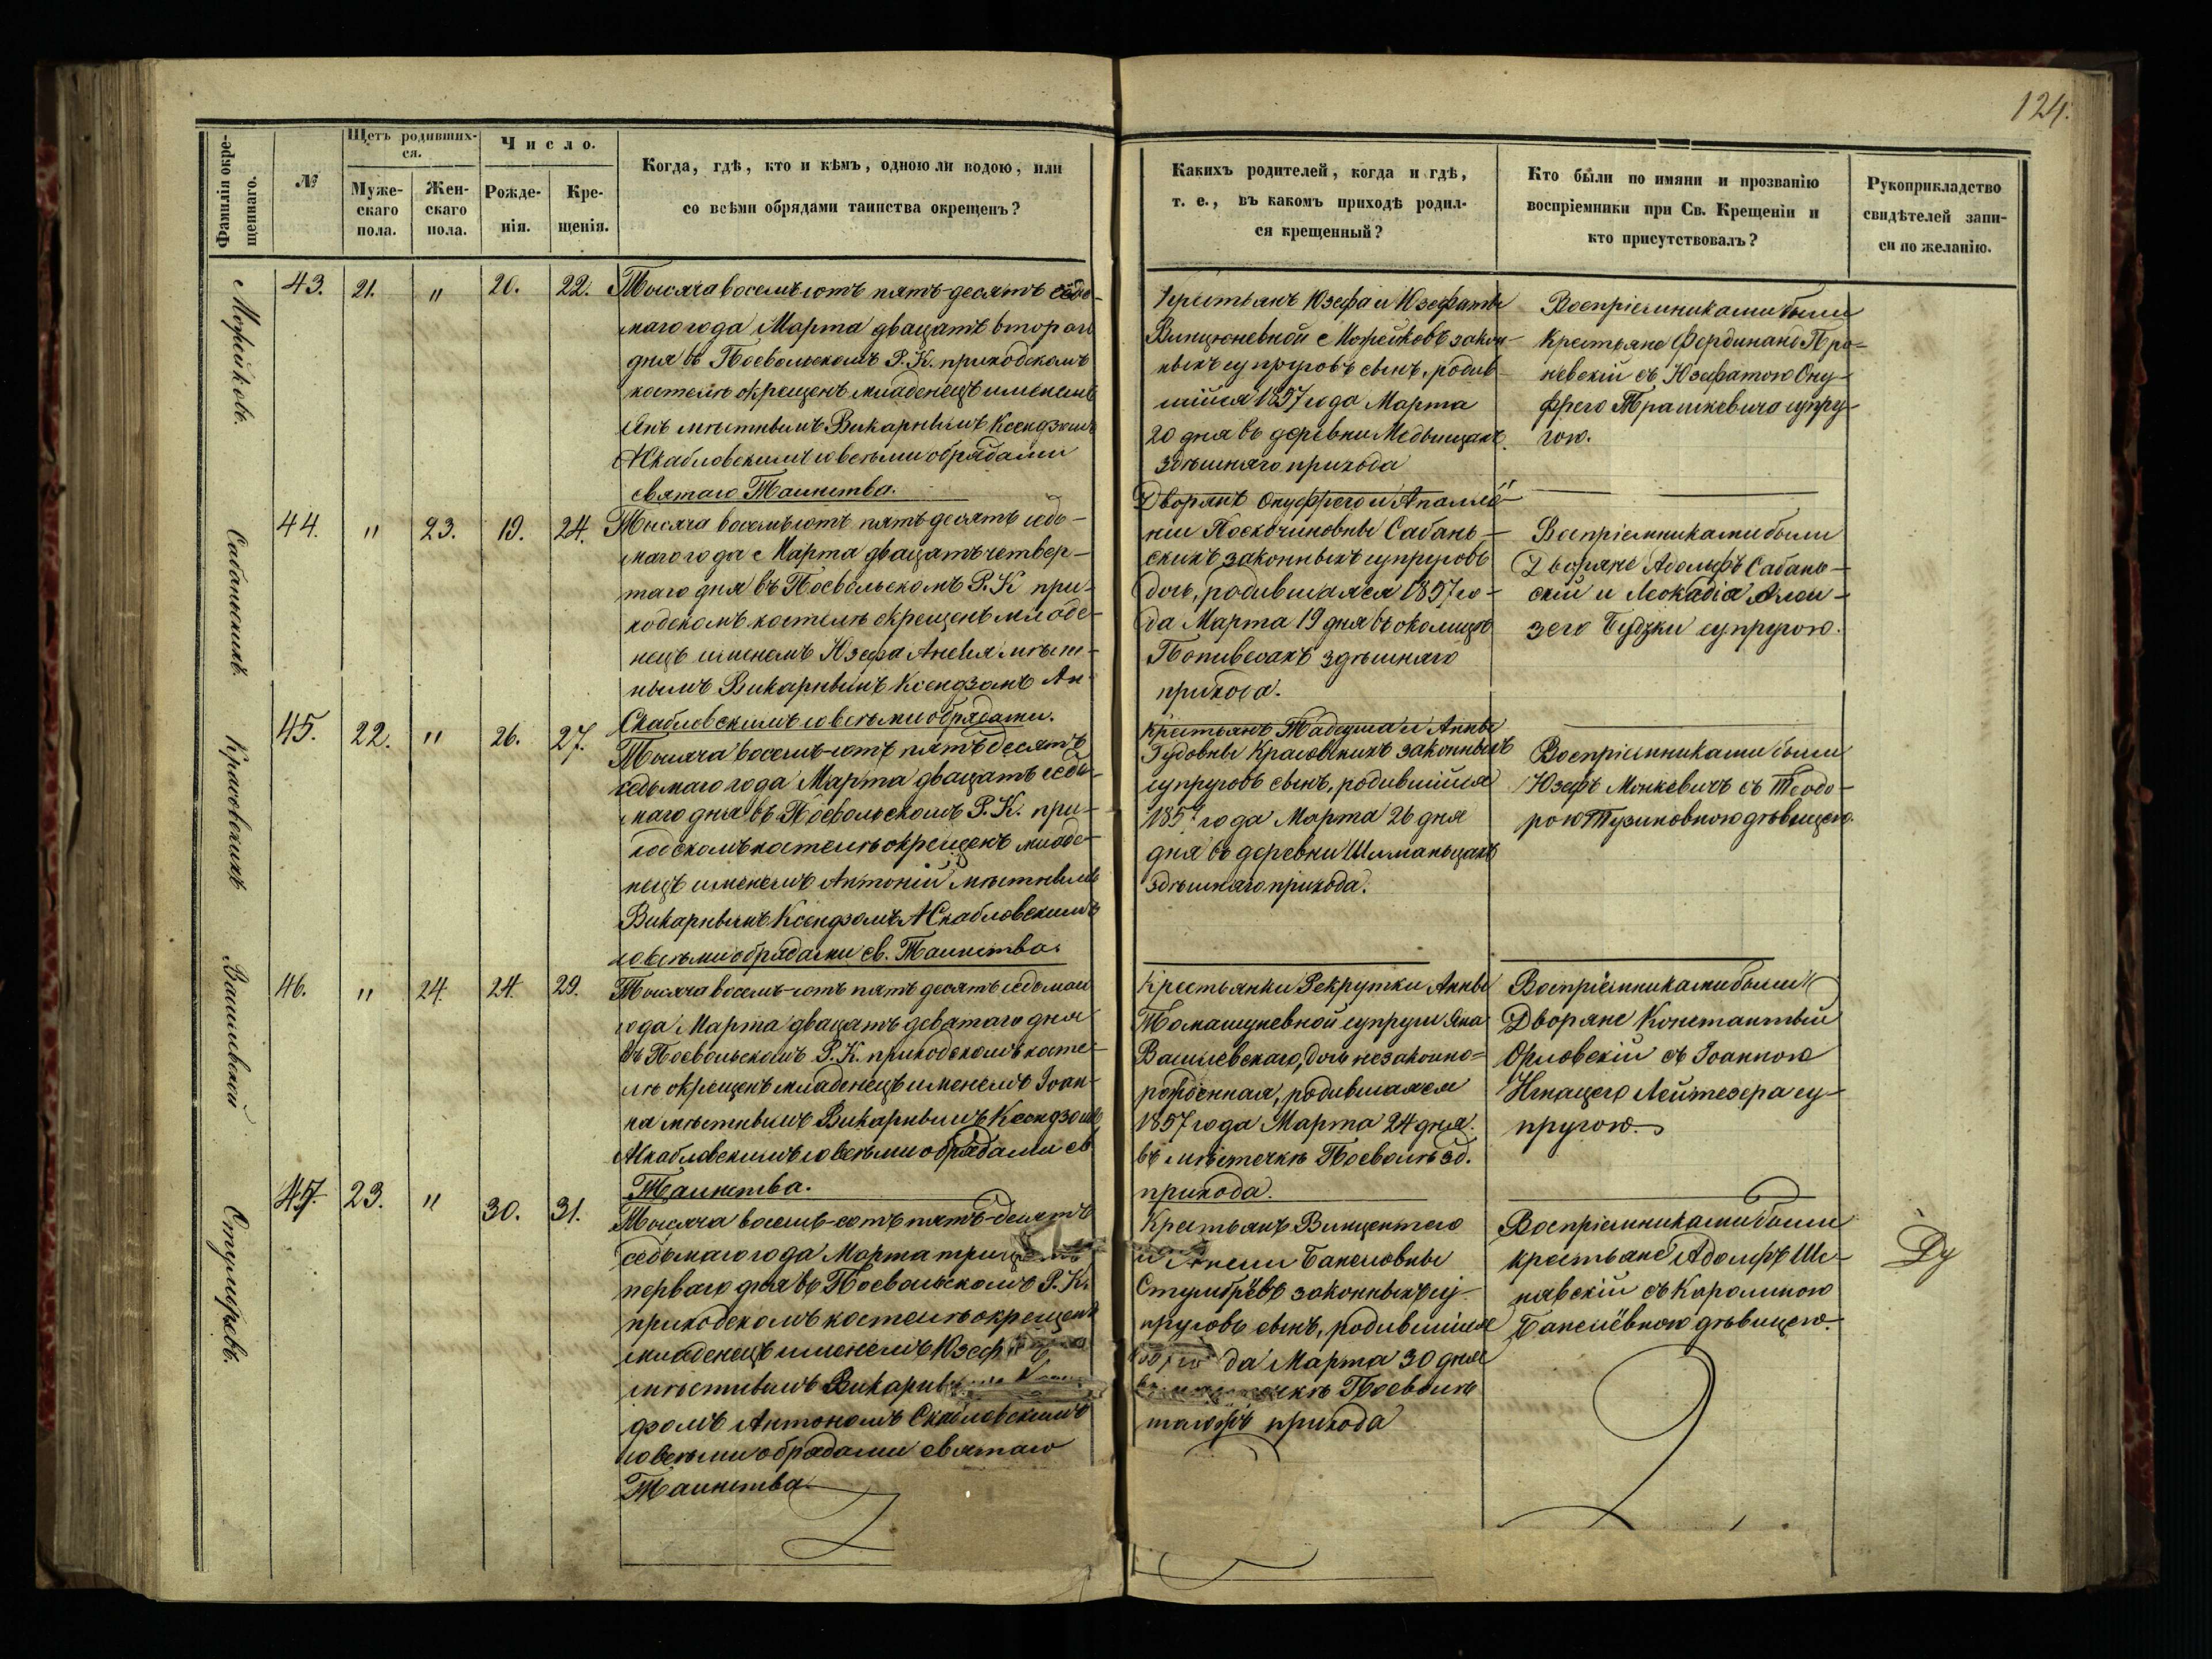 124.
Фамилія окре-
щеннаго.
№
Щетъ родивших-
ся.
Муже-
скаго
пола.
Жен-
скаго
пола.
Число.
Рожде-
нія.
Кре-
щенія.
Когда, гдѣ, кто и кѣмъ, одною ли водою, или
со всѣми обрядами таинства окрещенъ?
Какихъ родителей, когда и гдѣ,
т. е., въ какомъ приходѣ родил-
ся крещенный?
Кто были по имяни и прозванію
воспріемники при Св. Крещеніи и
кто присутствовалъ?
Рукоприкладство
свидѣтелей запи-
си по желанію.
Можейковъ.
43. 21. " 20. 22.
Тысяча восемъсотъ пять-десятъ седь-
маго года Марта двацать втораго
дня въ Посвольскомъ Р. К. приходскомъ
костелѣ окрещенъ младенецъ именемъ
Янъ мѣстнымъ Викарнымъ Ксендзомъ
АСкабловскимъ со всѣми обрядами
святаго Таинства.
Крестьянъ Юзефа и Юзефаты
Винцюневной Можейковъ закон-
ныхъ супруговъ сынъ, родив-
шійся 1857 года Марта
20 дня въ деревни
здѣшняго прихода
Воспріемниками были
Крестьяне Фердинандъ Про-
невскій съ Юзефатою Ону-
фрего Трашкевича супру-
гою.
Сабанскихъ.
44. " 23. 19. 24.
Тысяча восемъсотъ пять-десятъ седь-
маго года Марта двацать четвер-
таго дня въ Посвольскомъ Р. К. при-
ходскомъ костелѣ окрещенъ младе-
нецъ именемъ Юзефа Анеля мѣст-
нымъ Викарнымъ Ксендзомъ Ан-
Скабловскимъ со всѣми обрядами.
Дворянъ Онуфрего и Апалло-
ніи Посконовны Сабань-
скихъ законныхъ супруговъ
дочь, родившаяся 1857 го-
да Марта 19 дня въ околицѣ
здѣшняго
прихода.
Воспріемниками были
Дворяне Адольфъ Сабань-
скій и Леокадія Алои-
зего Будзки супругою.
Красовскихъ
45. 22. " 26. 27.
Тысяча восемъ-сотъ пять десятъ
седьмаго года Марта двацать седь-
маго дня въ Посвольскомъ Р. К. при-
ходскомъ костелѣ окрещенъ младе-
нецъ именемъ Антоній мѣстнымъ
Викарнымъ Ксендзомъ АСкабловскимъ
со всѣми обрядами св. Таинства.
Крестьянъ Тадеуша и Анны
Гудовны Красовскихъ законныхъ
супруговъ сынъ, родившійся
1857 года Марта 26 дня
дня въ деревни Шиманцахъ
здѣшняго прихода.
Воспріемниками были
Юзефъ Монкевичъ съ Теодо-
рою Тузиковною дѣвицею.
Вашлевскій
46. " 24. 24. 29.
Тысяча восемъ-сотъ пять десятъ седьмаго
года Марта двацать девятаго дня
въ Посвольскомъ Р. К. приходскомъ косте-
лѣ окрещенъ младенецъ именемъ Іоан-
на мѣстнымъ Викарнымъ Ксендзомъ
АСкабловскимъ со всѣми обрядами св.
Таинства.
Крестьянки Рекрутки Анны
Томашуневной супруги Яна
Вашлевскаго, дочь незаконно-
рожденная, родившаяся
1857 года Марта 24 дня.
въ мѣстечкѣ Посволѣ зд.
прихода.
Воспріемниками были
Дворяне Константый
Орловскій съ Іоанною
Игнацего Лейтезера су-
пругою.
Стумбрёвъ.
47. 23. " 30. 31.
Тысяча восемъ-сотъ пять-десятъ
седьмаго года Марта
перваго дня въ Посвольскомъ Р. К.
приходскомъ костелѣ окрещенъ
младенецъ именемъ Юзефъ
мѣстнымъ
дзомъ Антономъ Скабловскимъ
со всѣми обрядами святаго
Таинства.
Крестьянъ Винцентего
и Анели Банелювны
Стумбрёвъ законныхъ су-
пруговъ сынъ, родившійся
года Марта 30 дня
Посволѣ
тогожъ прихода
Воспріемниками были
крестьяне Адольфъ Ше-
пявскій съ Каролиною
Банелёвною дѣвицею.